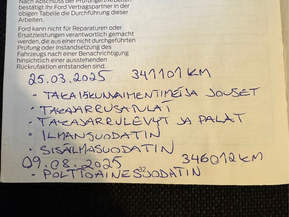 Nach Abschluss der Prüfungsarbeiten
bestätigt Ihr Ford Vertragspartner in der
obigen Tabelle die Durchführung dieser
Arbeiten.
Ford kann nicht für Reparaturen oder
Ersatzleistungen verantwortlich gemacht
werden, die aus einer nicht durchgeführten
Prüfung oder Instandsetzung des
Fahrzeugs nach einer Benachrichtigung
hinsichtlich einer ausstehenden
Rückrufaktion entstanden sind.
25.03.2025 341101 KM
- TAKAISKUNVAIMENTIMET JA JOUSET
- TAKAJARRUSATULAT
- TAKAJARRULEVYT JA PALAT
- ILMANSUODATIN
- SISÄILMASUODATIN
09.08.2025 346012 KM
- POLTTOAINESUODATIN